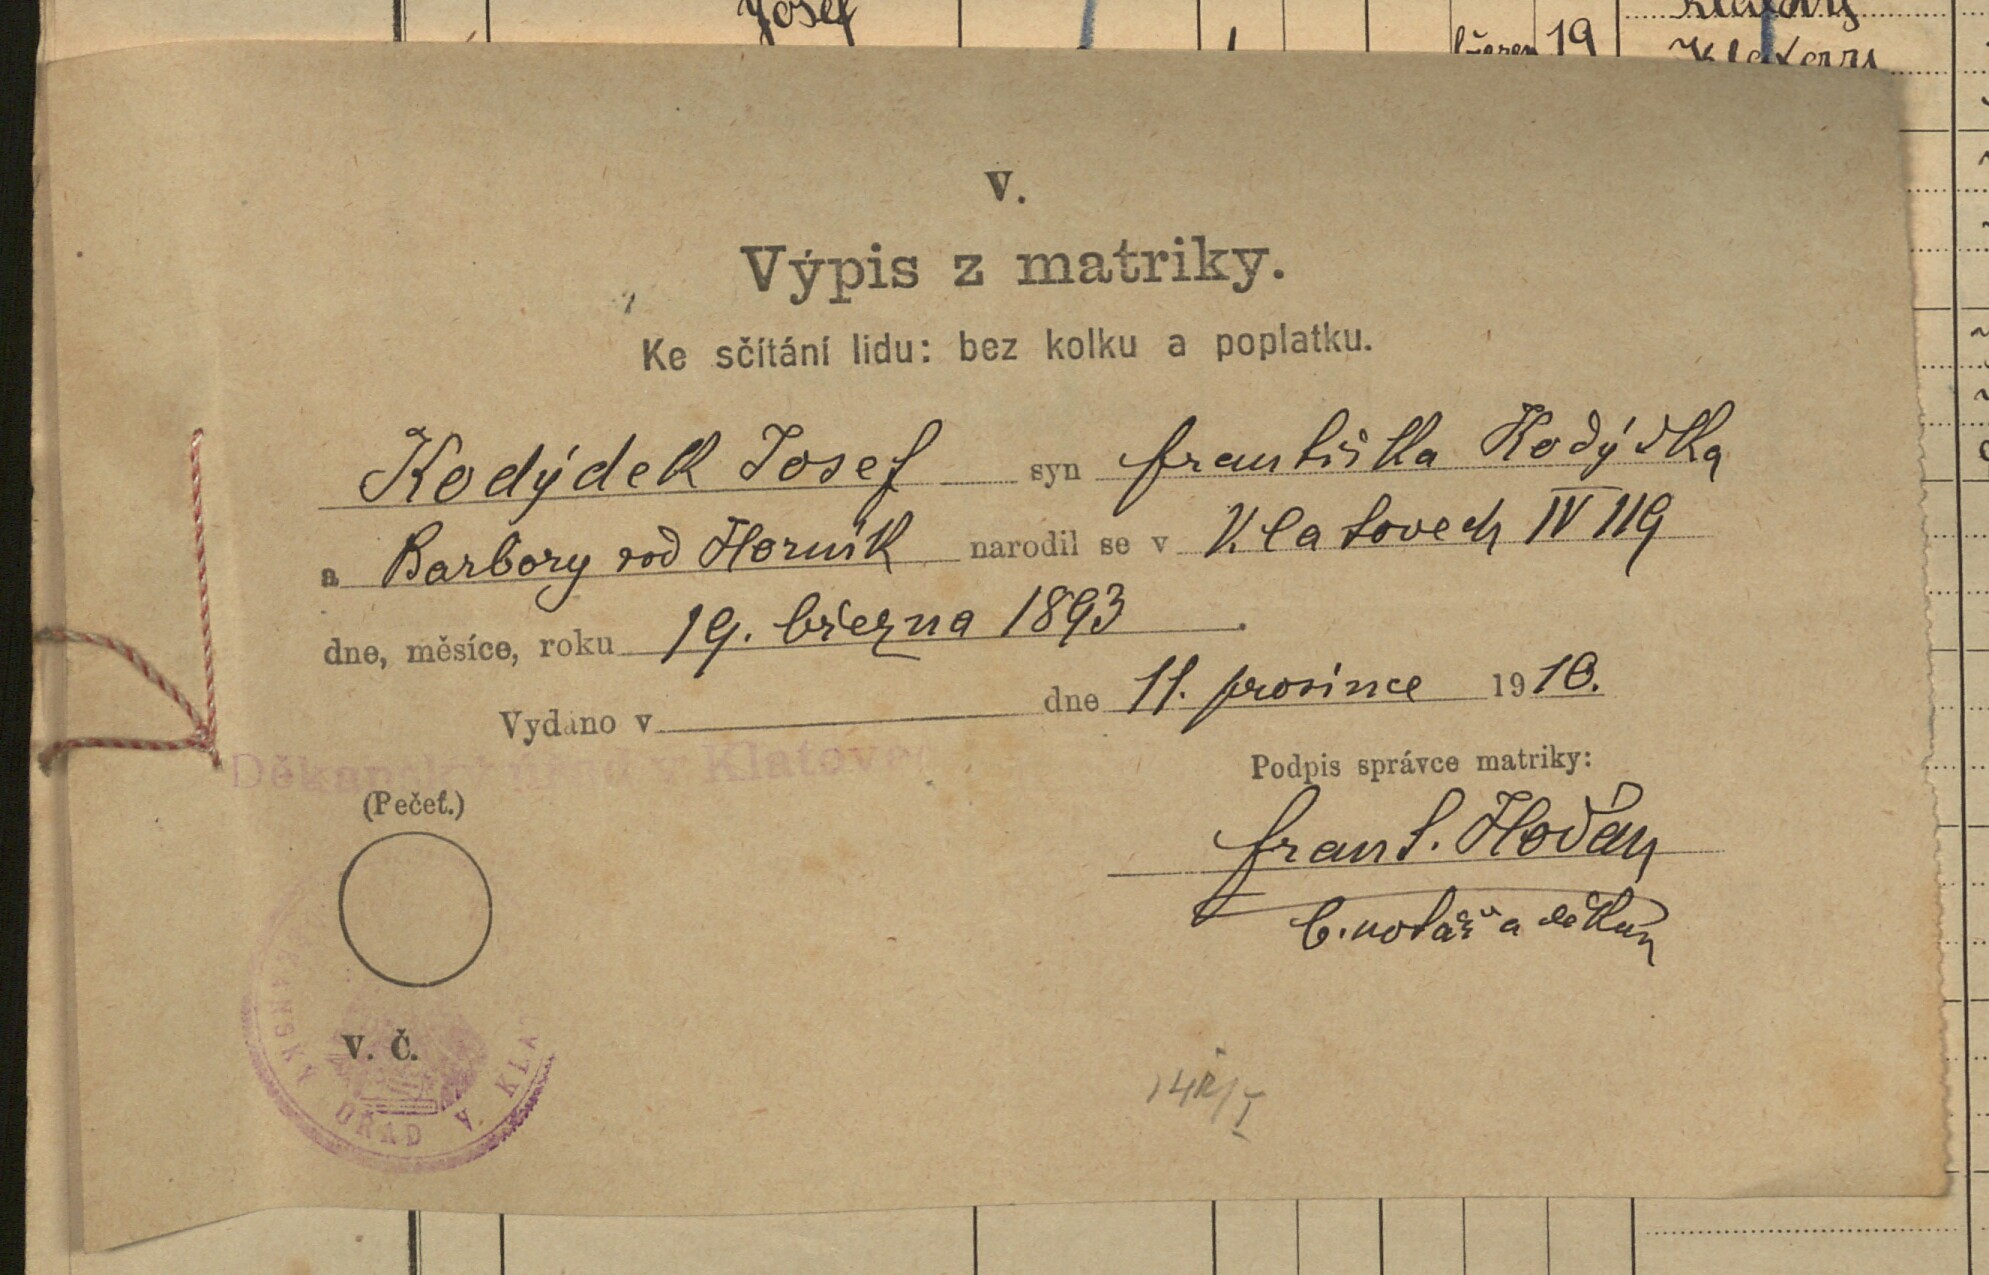 Josef
Klatovy
březen 19 Klatovy
V.
Výpis z matriky.
Ke sčítání lidu: bez kolku a poplatku.
Kodýdek Josef syn Františka Kodýdka
a Barbory rod Horník narodil se v Klatovech IV 119
dne, měsíce, roku 19. března 1893.
Vydáno v dne 11. prosince 1910.
Děkanský úřad v Klatovech
Podpis správce matriky:
(Pečeť.)
Frant. Hoďán
b. notář a děkan
V. Č.
DĚKANSKÝ ÚŘAD V KLA